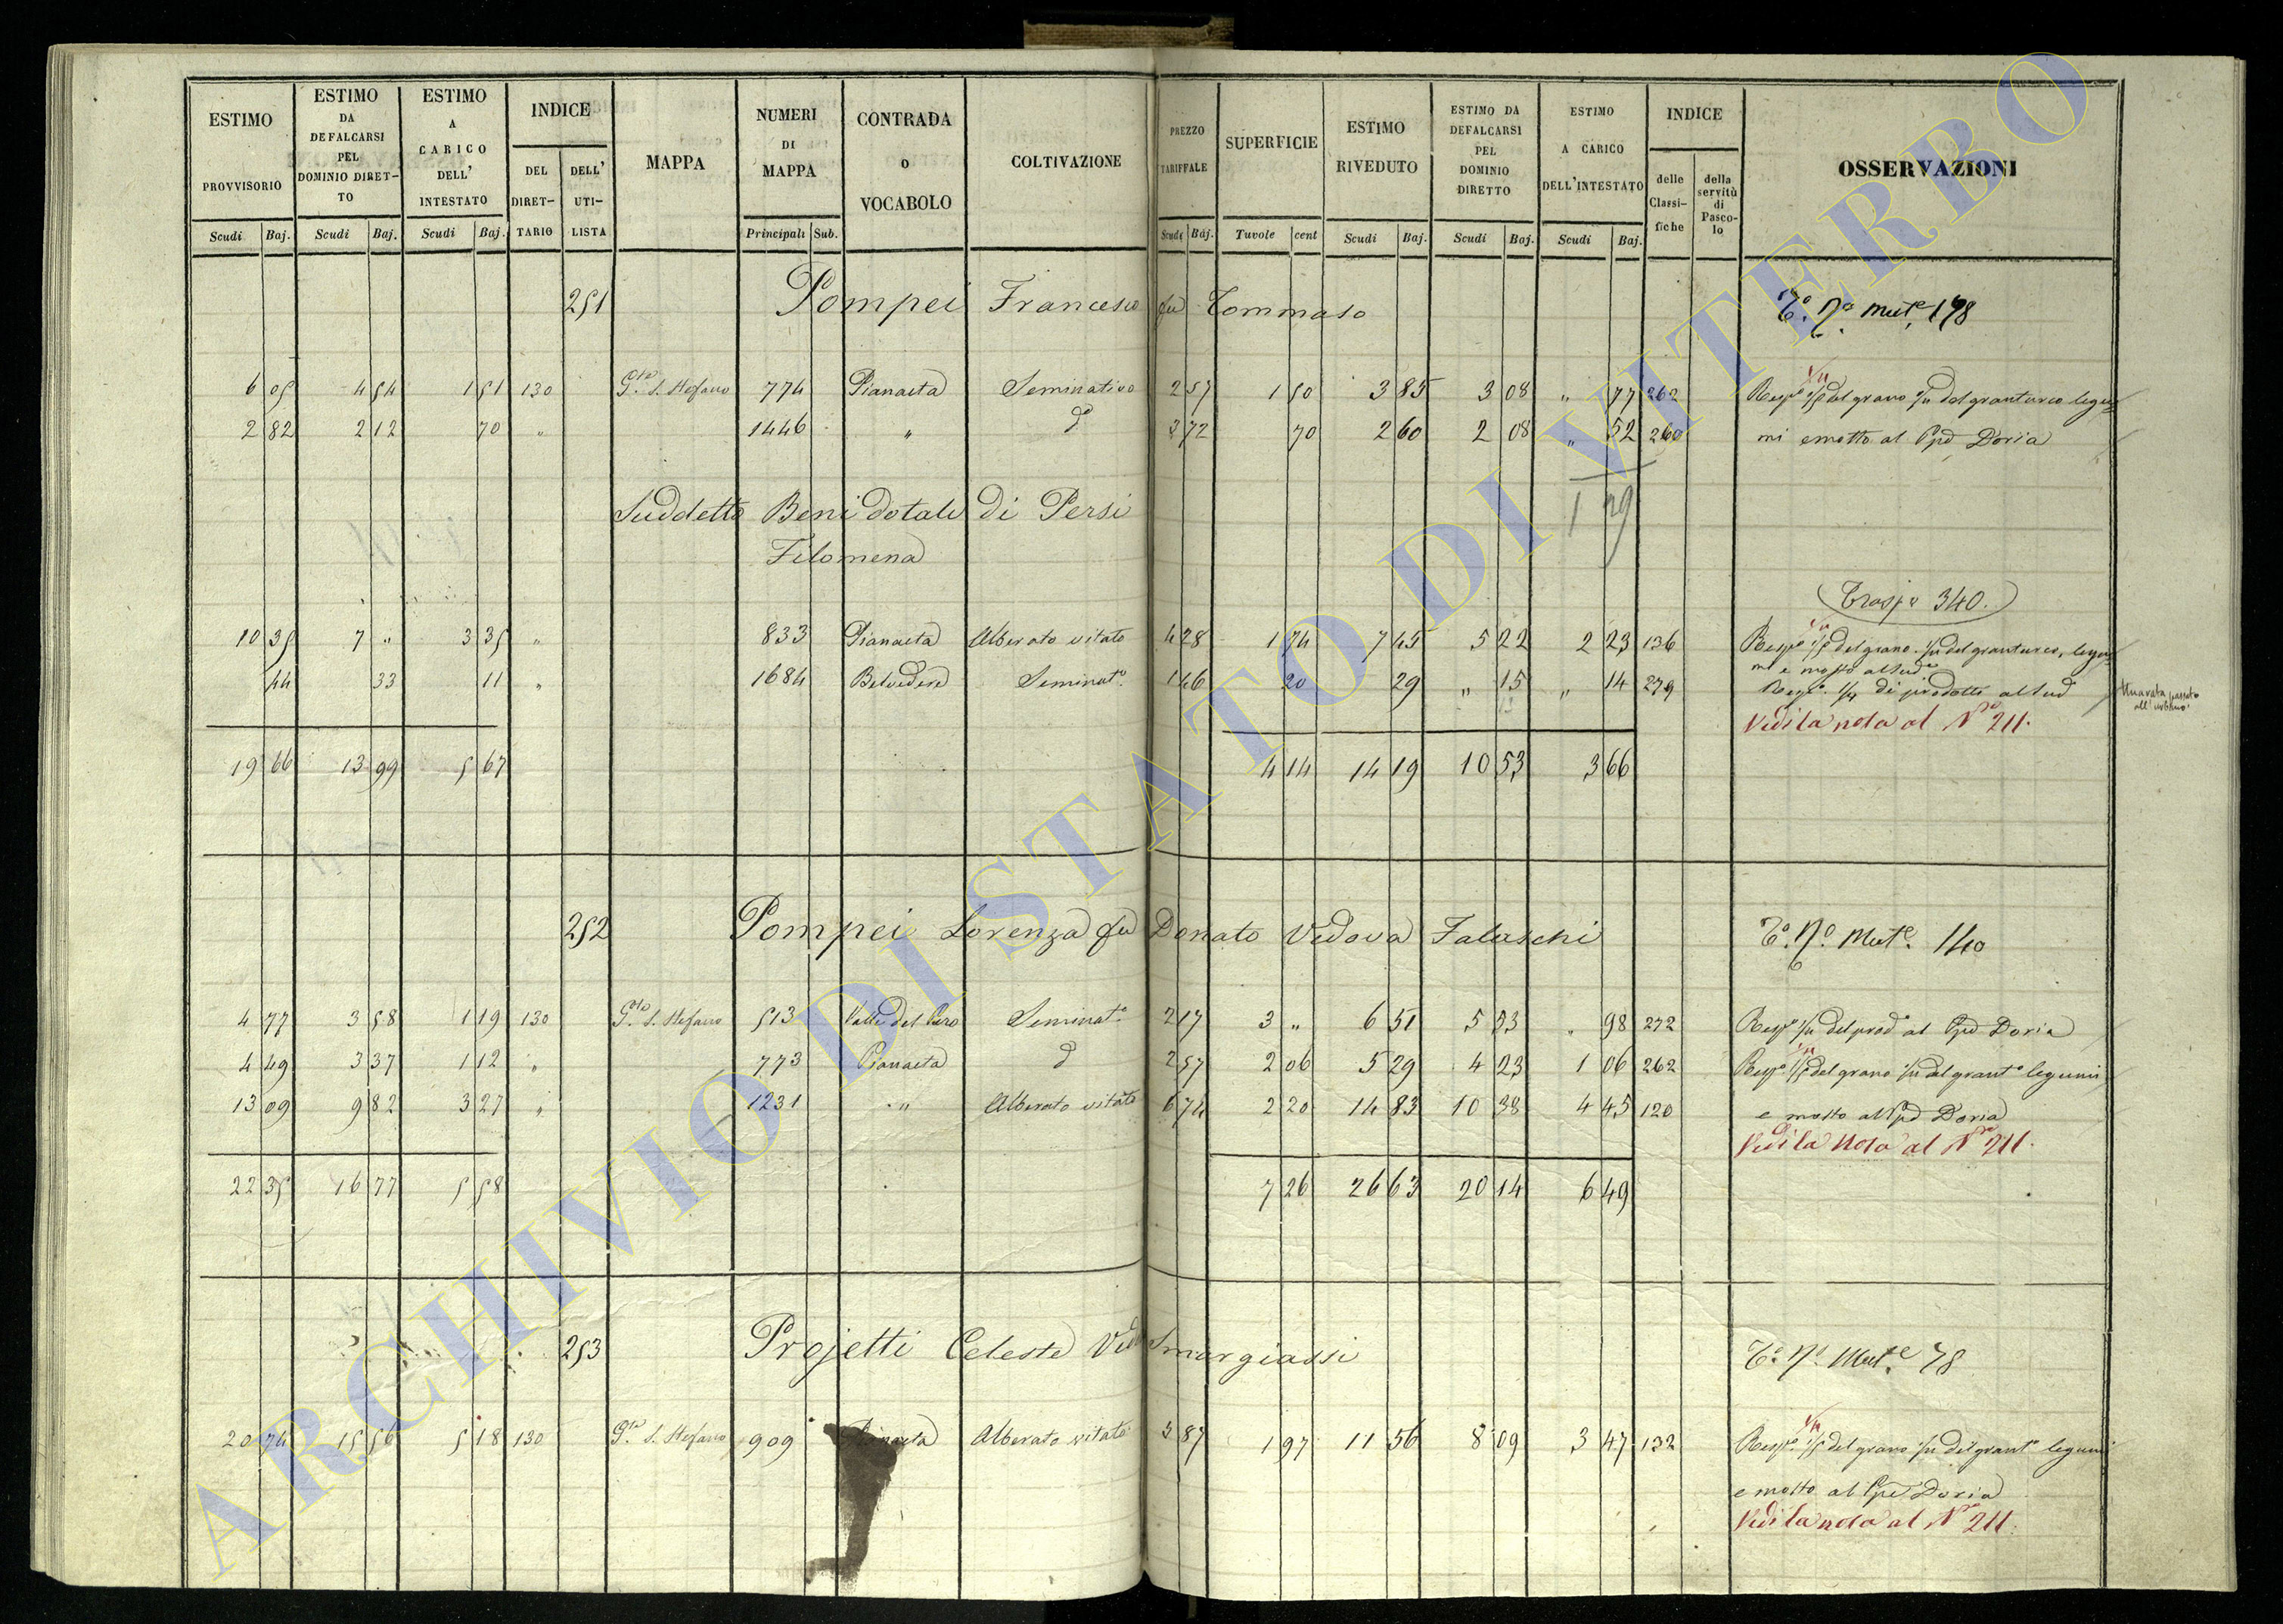 ESTIMO PROVVISORIO | ESTIMO DA DEFALCARSI PEL DOMINIO DIRETTO | ESTIMO A CARICO DELL' INTESTATO | INDICE DEL DIRETTARIO | DELL' UTILISTA | MAPPA | NUMERI DI MAPPA | CONTRADA O VOCABOLO | COLTIVAZIONE | PREZZO TARIFFALE | SUPERFICIE | ESTIMO RIVEDUTO | ESTIMO DA DEFALCARSI PEL DOMINIO DIRETTO | ESTIMO A CARICO DELL'INTESTATO | INDICE delle Classifiche | della servitù di Pascolo | OSSERVAZIONI
Scudi Baj. Scudi Baj. Scudi Baj. Principali Sub. Scudi Baj. Tavole cent Scudi Baj. Scudi Baj. Scudi Baj.
251 Pompei Francesco fu Tommaso
6 05 4 54 1 51 130 Gta S. Stefano 774 Pianaeta Seminativo 2 57 1 50 3 85 3 08 " 77 262 Respe 1/5 del grano 1/11 del granturco legu=
2 82 2 12 70 " 1446 " do 3 72 70 2 60 2 08 " 52 260 mi e mosto al Ppe Doria
1 29
Suddetto Beni dotali di Persi
Filomena
340.
10 35 7 " 3 35 " 833 Pianaeta Alberato vitato 4 28 1 74 7 45 5 22 2 23 136 Respe 1/5 del grano 1/11 del granturco, legu=
mi e mosto al sudo
44 33 11 " 1684 Belvedere Seminato 1 46 20 29 " 15 " 14 279 Respe 1/4 di prodotti al sud
passato all'urbano
Vedi la nota al No 211.
19 66 13 99 5 67 4 14 14 19 10 53 3 66
252 Pompei Lorenza fu Donato Vedova Falaschi To No Mute 140
4 77 3 58 1 19 130 Gta S. Stefano 513 Valle del Seminato 2 17 3 " 6 51 5 53 " 98 272 Respe 1/11 del prodo al Ppe Doria
4 49 3 37 1 12 " 773 Pianaeta d 2 57 2 06 5 29 4 23 1 06 262 Respe 1/5 del grano 1/11 del granto legumi
13 09 9 82 3 27 " 1231 " Alberato vitato 6 74 2 20 14 83 10 38 4 45 120 e mosto al Ppe Doria
Vedi la Nota al No 211.
22 35 16 77 5 58 7 26 26 63 20 14 6 49
253 Projetti Celeste Veda Smargiassi To No Mute 78
20 74 15 56 5 18 130 Gta S. Stefano 909 Pianaeta Alberato vitato 5 87 1 97 11 56 8 09 3 47 132 Respe 1/5 del grano 1/11 del granto legumi
e mosto al Ppe Doria
Vedi la nota al No 211.
ARCHIVIO DI STATO DI VITERBO